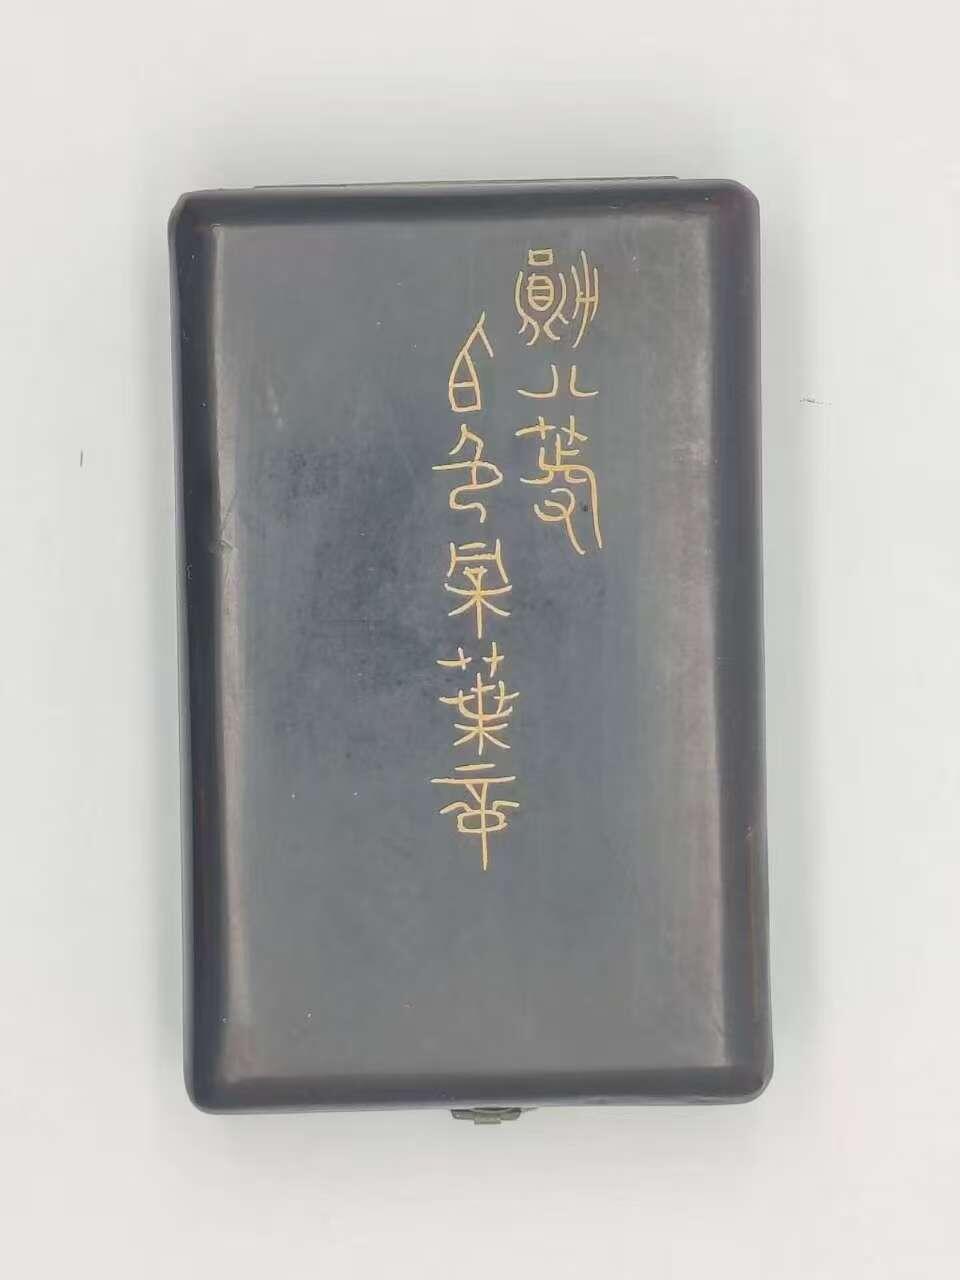 勳八等
白色桐葉章